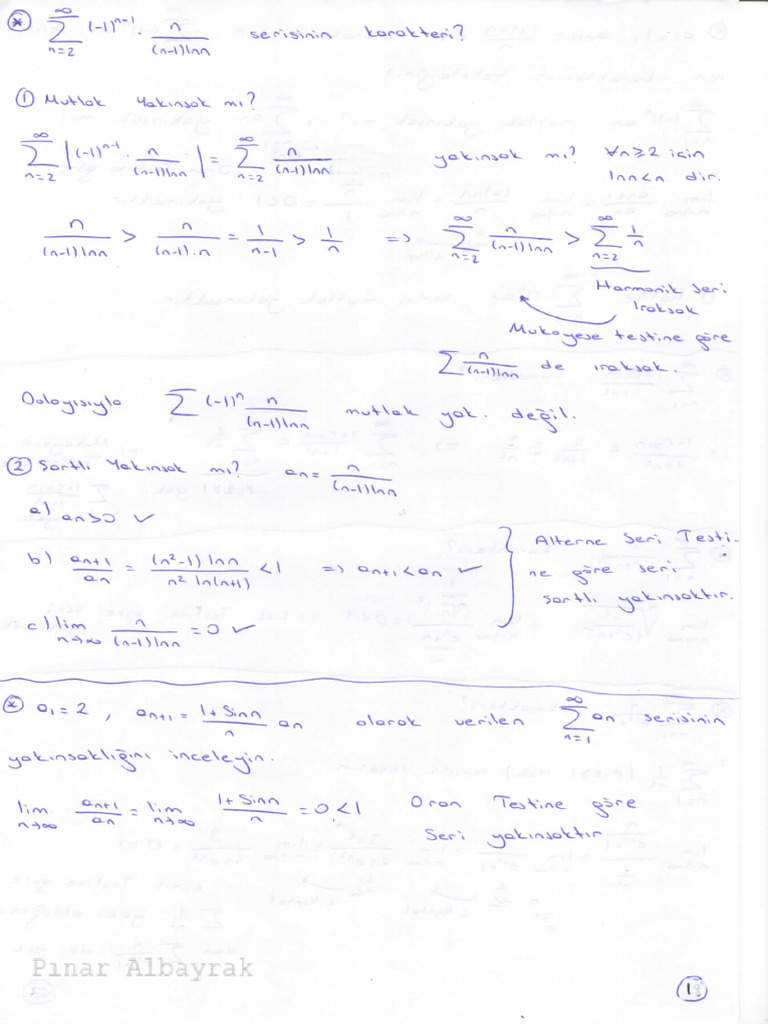 * ∑_{n=2}^{∞} (-1)^{n-1} . n/((n-1)lnn) serisinin karakteri?
① Mutlak Yakınsak mı?
∑_{n=2}^{∞} |(-1)^{n-1} . n/((n-1)lnn)| = ∑_{n=2}^{∞} n/((n-1)lnn) yakınsak mı? ∀n≥2 için
lnn<n dir.
n/((n-1)lnn) > n/((n-1).n) = 1/(n-1) > 1/n => ∑_{n=2}^{∞} n/((n-1)lnn) > ∑_{n=2}^{∞} 1/n
Harmonik Seri
Iraksak
Mukayese testine göre
∑ n/((n-1)lnn) de ıraksak.
Dolayısıyla ∑ (-1)^n n/((n-1)lnn) mutlak yak. değil.
② Şartlı Yakınsak mı? an = n/((n-1)lnn)
a) an>0 ✓
b) an+1/an = ((n²-1) lnn)/(n² ln(n+1)) < 1 => an+1 < an ✓
c) lim_{n→∞} n/((n-1)lnn) = 0 ✓
Alterne Seri Testi-
ne göre seri
şartlı yakınsaktır.
* a₁=2 , an+1 = (1+Sinn)/n an olarak verilen ∑_{n=1}^{∞} an serisinin
yakınsaklığını inceleyin.
lim_{n→∞} an+1/an = lim_{n→∞} (1+Sinn)/n = 0<1 Oran Testine göre
Seri yakınsaktır
Pınar Albayrak